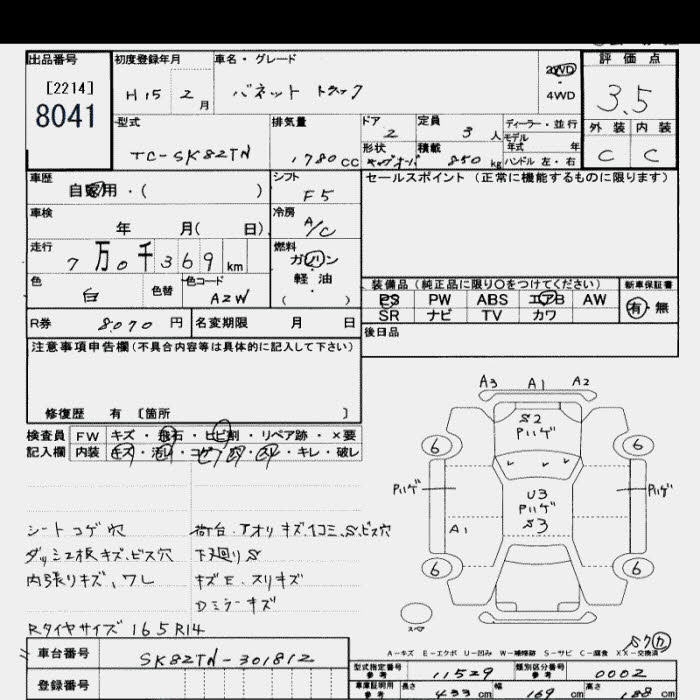 出品番号 初度登録年月 車名・グレード 評価点
[2214] H15 2月 バネット トラック 2WD 3.5
8041 4WD
外装 内装
型式 排気量 ドア 2 定員 3人 ディーラー・並行
モデル
年式 年
TC-SK82TN 1780CC 形状 積載 850kg ハンドル 左・右 C C
車歴 シフト セールスポイント (正常に機能するものに限ります)
自家用・( ) F5
車検 冷房
年 月( 日) A/C
走行 燃料
7万0千369km ガソリン
軽油
( )
色 白 色替 色コード A2W
装備品 (純正品に限り○をつけてください) 新車保証書
PS PW ABS エアB AW 有・無
SR ナビ TV カワ
R券 8070円 名変期限 月 日 後日品
注意事項申告欄 (不具合内容等は具体的に記入して下さい)
修復歴 有 [箇所 ]
検査員 FW キズ・飛石・ヒビ割・リペア跡・×要
記入欄 内装 キズ・汚レ・コゲ・穴・スレ・キレ・破レ
A3 A1 A2
S2
Pハゲ
6 6
Pハゲ U3 Pハゲ
Pハゲ
S3
A1
6 6
スペア
シートコゲ穴 荷台、アオリキズ、凹コミ、S、ビス穴
ダッシュ板キズ、ビス穴 下廻りS
内張りキズ、ワレ キズE、スリキズ
Dミラーキズ
Rタイヤサイズ 165R14
A-キズ E-エクボ U-凹み W-補修跡 S-サビ C-腐食 XX-交換済
車台番号 SK82TN-301812
型式指定番号 参考 11529 類別区分番号 参考 0002
登録番号
車庫証明用 参考 長さ 433cm 幅 169cm 高さ 188cm